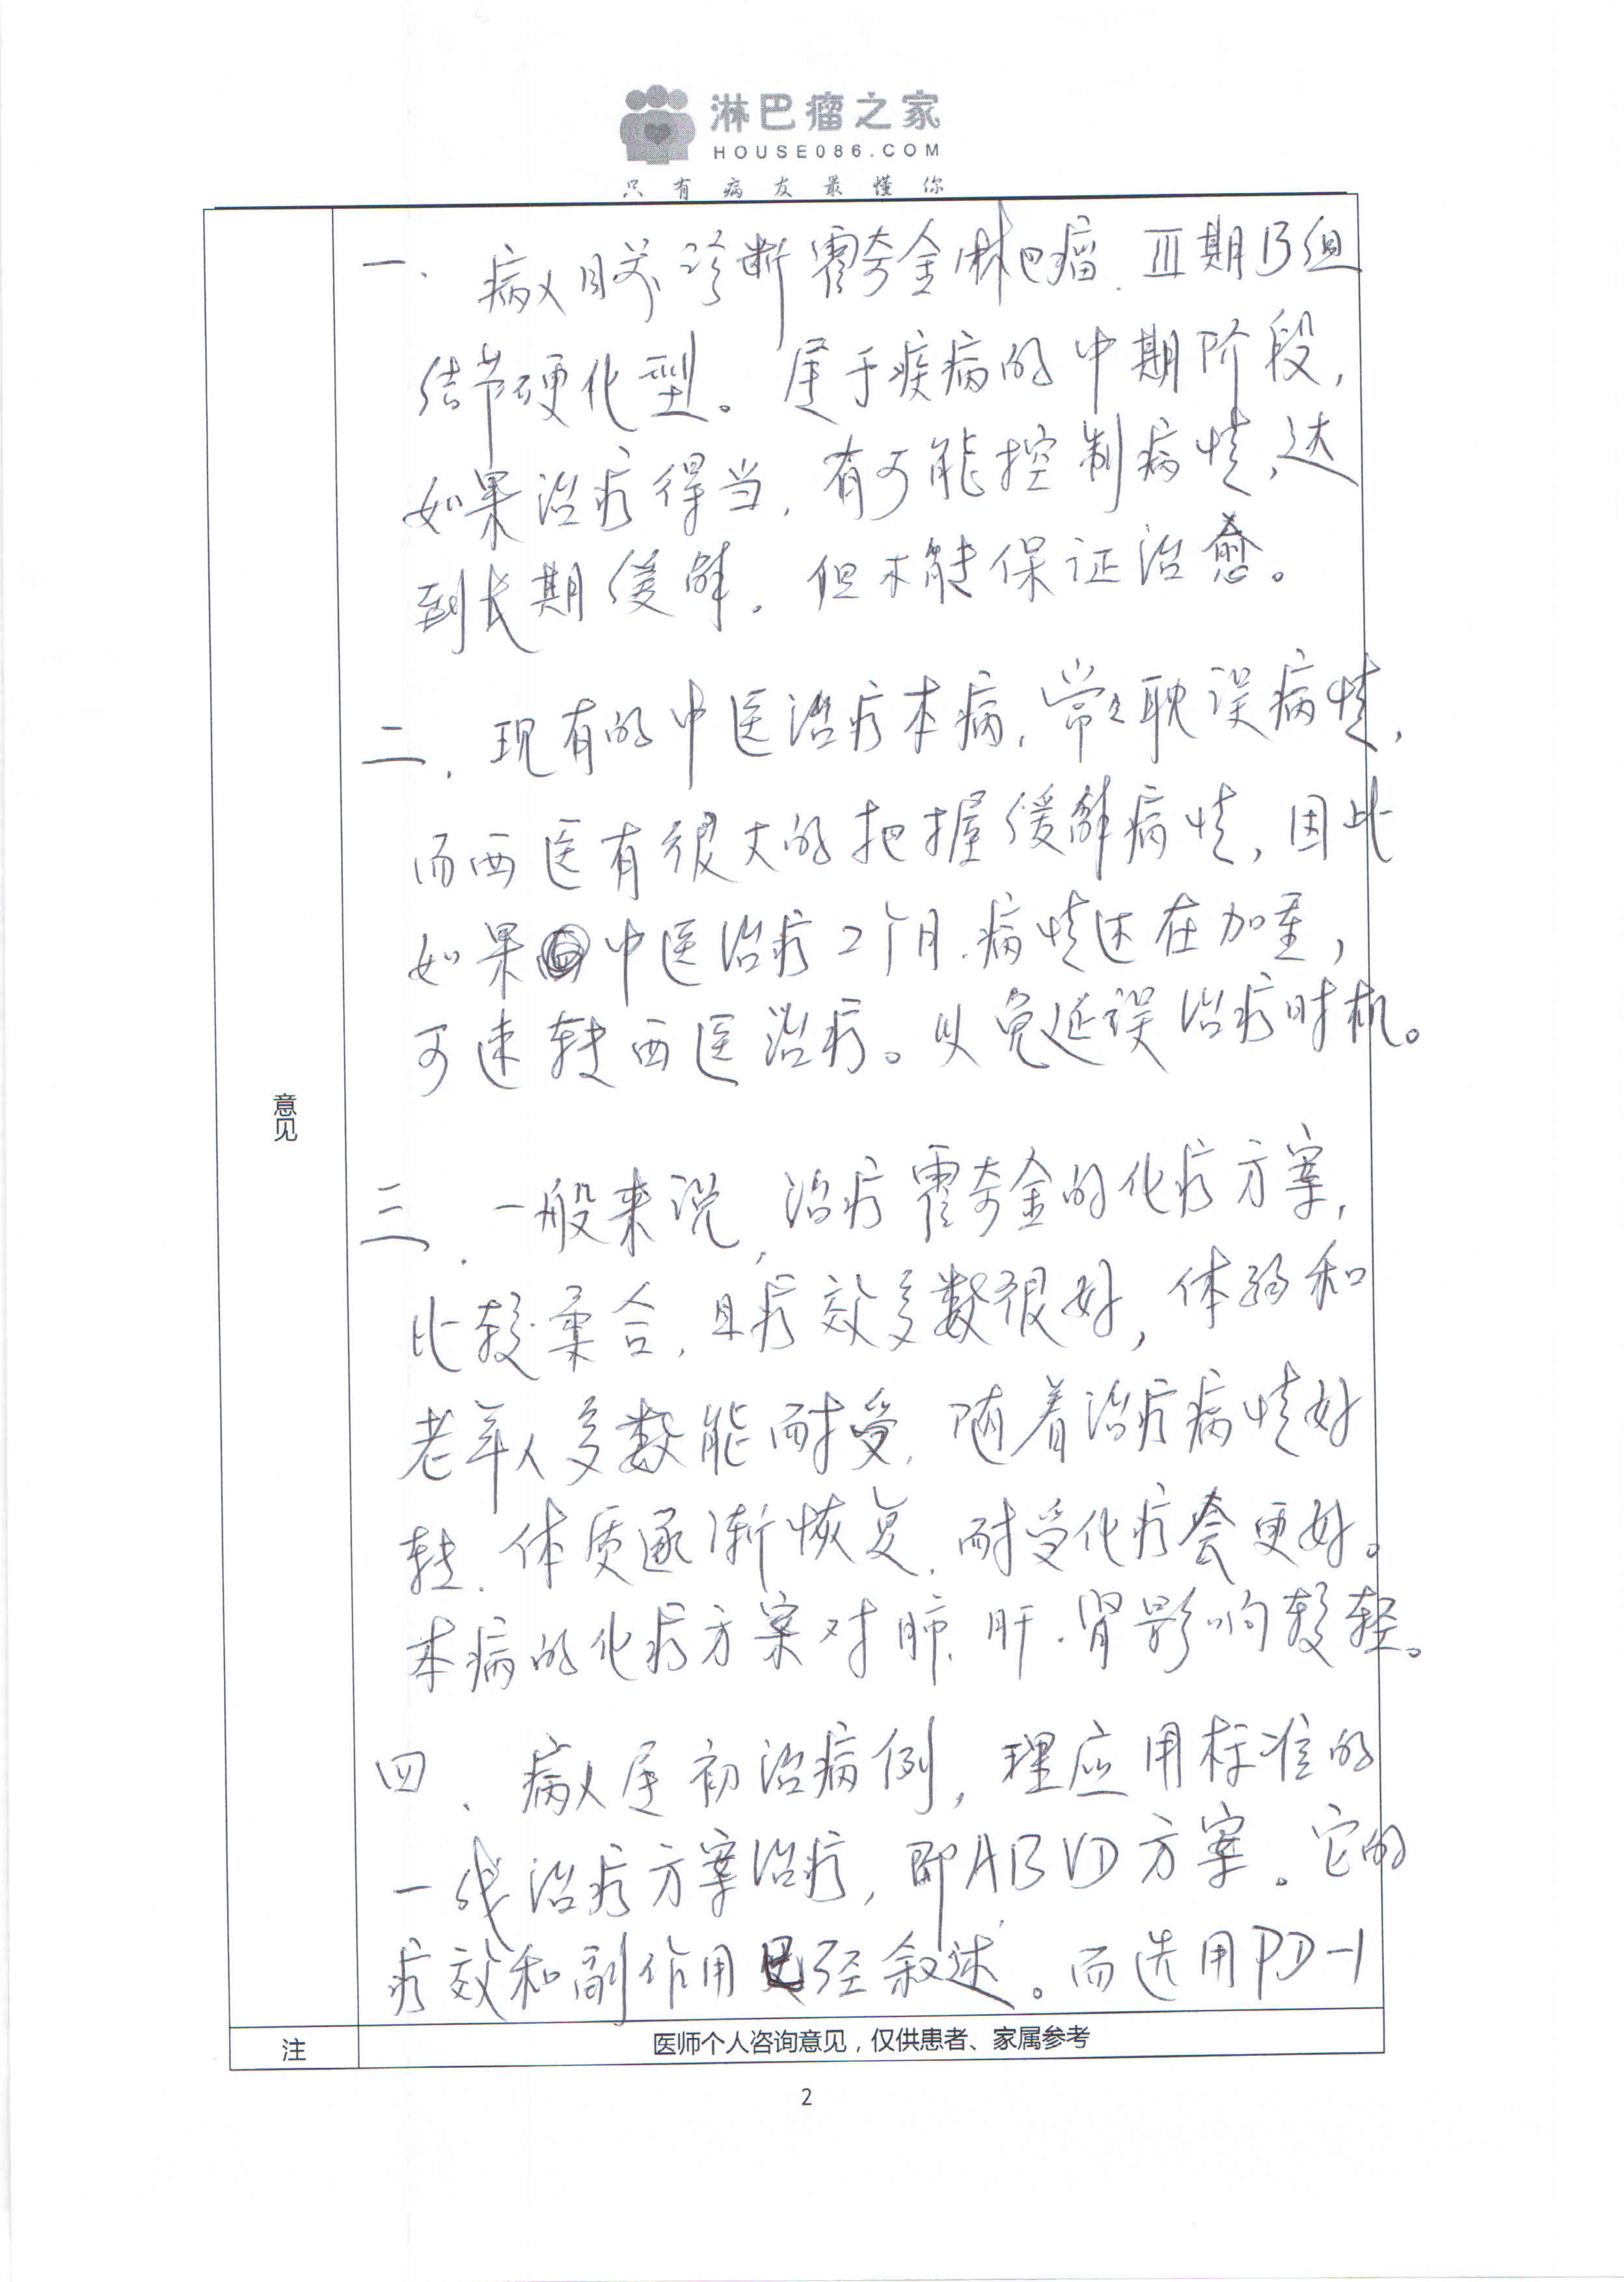 淋巴瘤之家
HOUSE086.COM
只有病友最懂你
一、病人目前诊断霍奇金淋巴瘤、Ⅲ期B组
结节硬化型。属于疾病的中期阶段,
如果治疗得当,有可能控制病情,达
到长期缓解。但不能保证治愈。
二、现有的中医治疗本病,常々耽误病情,
而西医有很大的把握缓解病情,因此
如果中医治疗2个月.病情还在加重,
可速转西医治疗。以免延误治疗时机。
意见
三、一般来说,治疗霍奇金的化疗方案,
比较柔合,且疗效多数很好,体弱和
老年人多数能耐受,随着治疗病情好
转.体质逐渐恢复,耐受化疗会更好。
本病的化疗方案对肺、肝、肾影响较轻。
四、病人属初治病例,理应用标准的
一线治疗方案治疗,即ABVD方案。它的
疗效和副作用已经叙述。而选用PD-1
注
医师个人咨询意见,仅供患者、家属参考
2